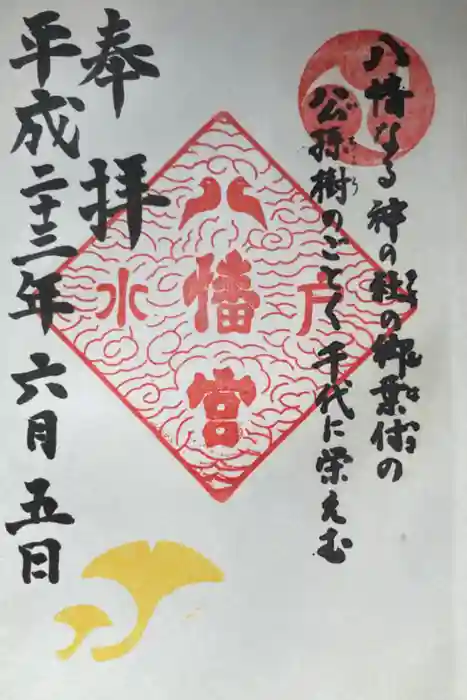 八幡なる神の樹の御葉付の
公孫樹のごとく千代に栄えむ
水戸
八幡宮
奉拝
平成二十三年六月五日